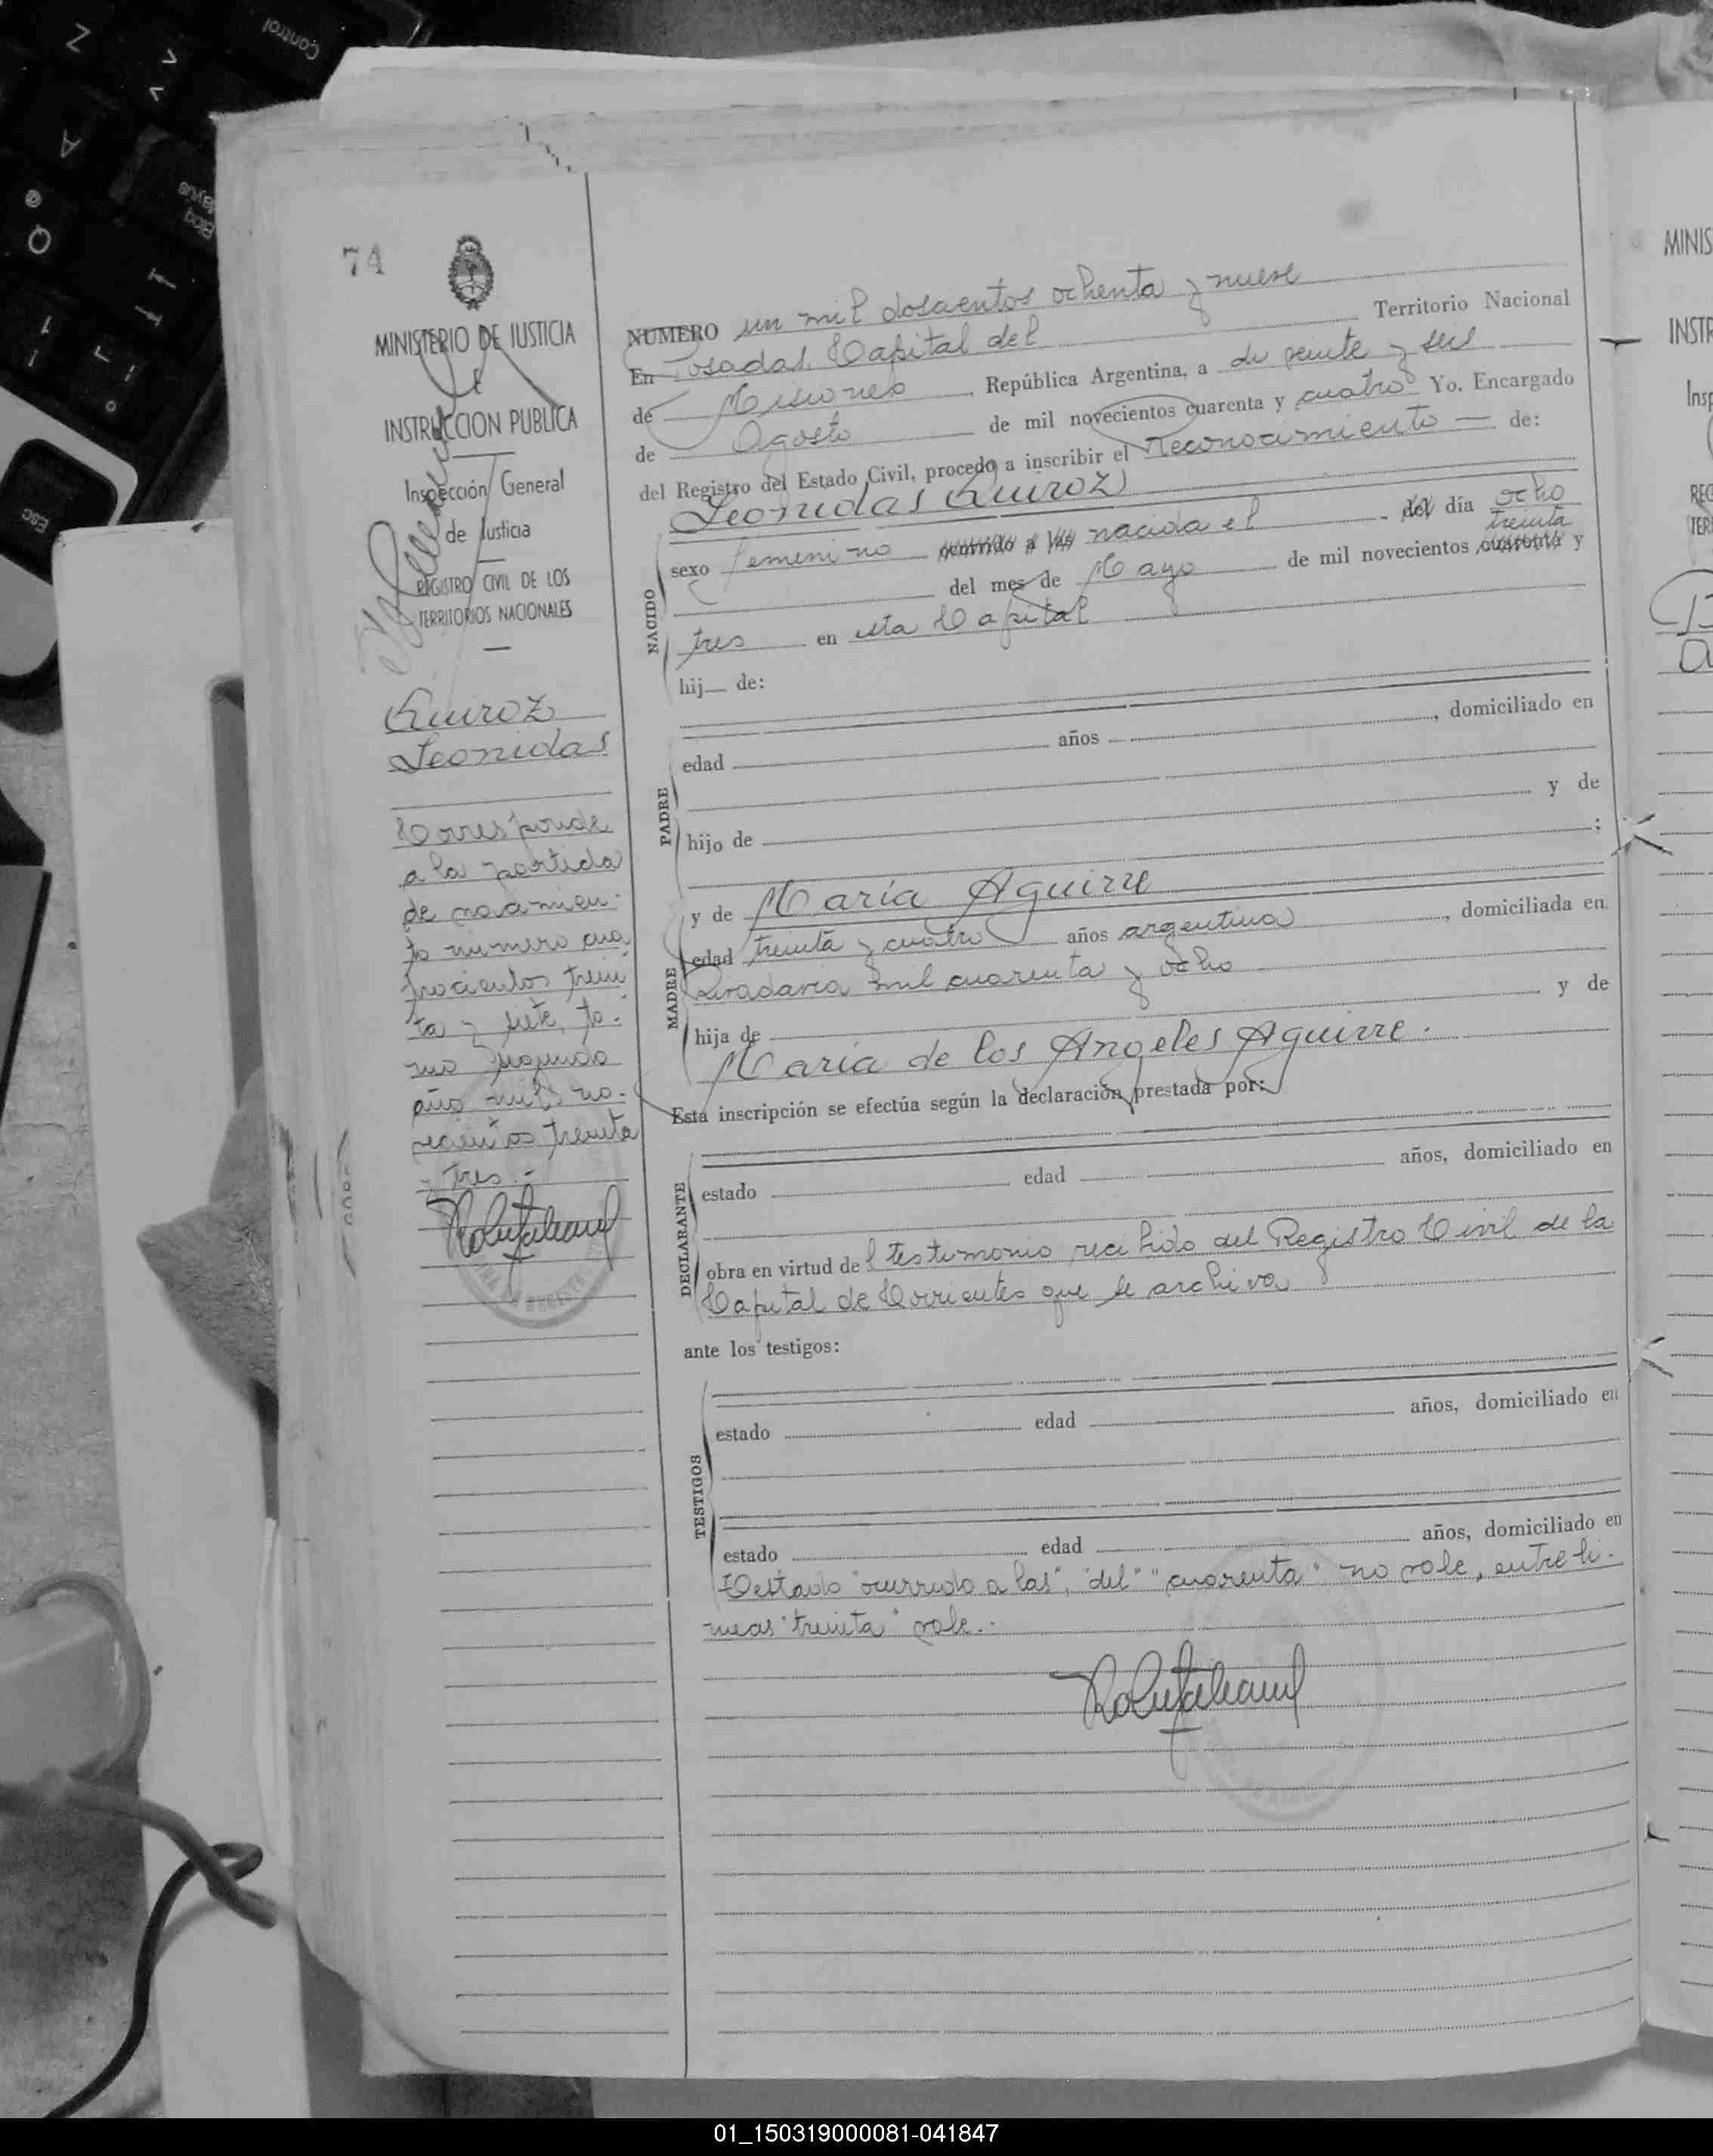 Control
Z
A
@
Q
Bloq
Mayus
Esc
74
MINISTERIO DE JUSTICIA
E
INSTRUCCION PUBLICA
Inspección General
de Justicia
REGISTRO CIVIL DE LOS
TERRITORIOS NACIONALES
Quiroz
Leonidas
Corresponde
a la partida
de nacimien-
to numero cua
trocientos trein
ta y siete, to-
mo segundo
año mil no-
vecientos treinta
y tres.-
NUMERO un mil doscientos ochenta y nueve
En Posadas, Capital del Territorio Nacional
de Misiones, República Argentina, a de veinte y seis
de Agosto de mil novecientos cuarenta y cuatro Yo, Encargado
del Registro del Estado Civil, procedo a inscribir el Reconocimiento — de:
Leonidas Quiroz
NACIDO
sexo femenino ocurrido a las nacida el del día ocho
treinta
del mes de Mayo de mil novecientos cuarenta y
tres en esta Capital
hij— de:
PADRE
edad años , domiciliado en
hijo de y de
;
MADRE
y de María Aguirre
edad treinta y cuatro años argentina , domiciliada en
Rivadavia mil cuarenta y ocho
hija de y de
María de los Angeles Aguirre.
Esta inscripción se efectúa según la declaración prestada por:
DECLARANTE
estado edad años, domiciliado en
obra en virtud del testimonio recibido del Registro Civil de la
Capital de Corrientes que se archiva
ante los testigos:
TESTIGOS
estado edad años, domiciliado en
estado edad años, domiciliado en
Testado "ocurrido a las", "del" "cuarenta" no vale, entre li-
neas "treinta" vale.-
MINIS
INSTR
Insp
REG
TER
01_150319000081-041847